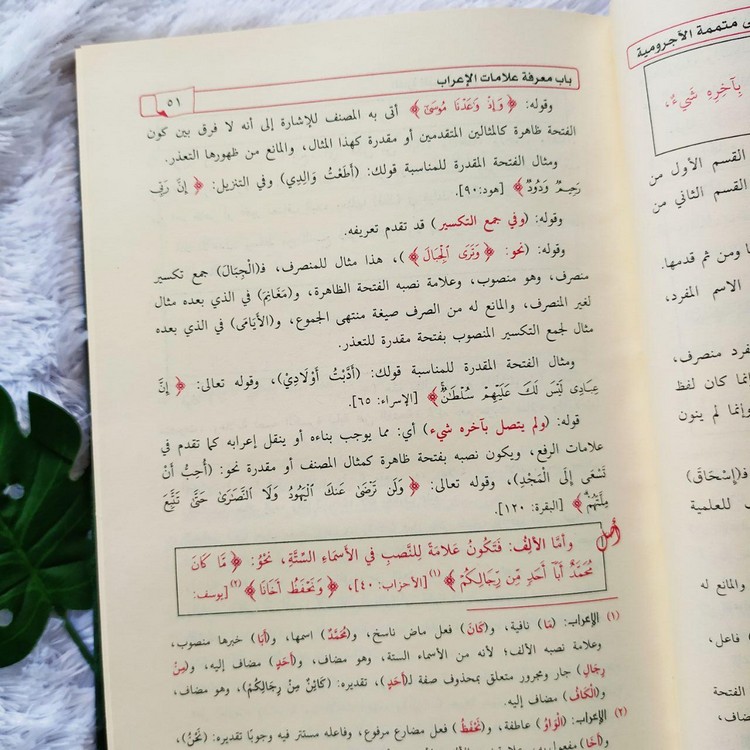 باب معرفة علامات الإعراب
٥١
وقوله: ﴿وَإِذْ وَٰعَدْنَا مُوسَىٰٓ﴾ أتى به المصنف للإشارة إلى أنه لا فرق بين كون
الفتحة ظاهرة كالمثالين المتقدمين أو مقدرة كهذا المثال، والمانع من ظهورها التعذر.
ومثال الفتحة المقدرة للمناسبة قولك: (أَطَعْتُ وَالِدِي) وفي التنزيل: ﴿إِنَّ رَبِّي
رَحِيمٌ وَدُودٌ﴾ [هود:٩٠].
وقوله: (وفي جمع التكسير) قد تقدم تعريفه.
وقوله: (نحو: ﴿وَتَرَى ٱلْجِبَالَ﴾)، هذا مثال للمنصرف، فـ(الْجِبَالَ) جمع تكسير
منصرف، وهو منصوب، وعلامة نصبه الفتحة الظاهرة، و(مَغَانِمَ) في الذي بعده مثال
لغير المنصرف، والمانع له من الصرف صيغة منتهى الجموع، و(الْأَيَامَى) في الذي بعده
مثال لجمع التكسير المنصوب بفتحة مقدرة للتعذر.
ومثال الفتحة المقدرة للمناسبة قولك: (أَدَّبْتُ أَوْلَادِيْ)، وقوله تعالى: ﴿إِنَّ
عِبَادِى لَيْسَ لَكَ عَلَيْهِمْ سُلْطَٰنٌ﴾ [الإسراء: ٦٥].
قوله: (ولم يتصل بآخره شيء) أي: مما يوجب بناءه أو ينقل إعرابه كما تقدم في
علامات الرفع، ويكون نصبه بفتحة ظاهرة كمثال المصنف أو مقدرة نحو: (أُحِبُّ أَنْ
تَسْعَى إِلَى الْمَجْدِ)، وقوله تعالى: ﴿وَلَن تَرْضَىٰ عَنكَ ٱلْيَهُودُ وَلَا ٱلنَّصَٰرَىٰ حَتَّىٰ تَتَّبِعَ
مِلَّتَهُمْ﴾ [البقرة: ١٢٠].
أصل
وأمَّا الألِفُ: فَتَكُونُ عَلامَةً لِلنَّصبِ في الأسْمَاءِ السِّتَّةِ، نَحْوُ: ﴿مَّا كَانَ
مُحَمَّدٌ أَبَآ أَحَدٍ مِّن رِّجَالِكُمْ﴾(١)[الأحزاب: ٤٠]، ﴿وَنَحْفَظُ أَخَانَا﴾(٢)[يوسف:
(١) الإعراب: (مَا) نافية، و(كَانَ) فعل ماض ناسخ، و(مُحَمَّدٌ) اسمها، و(أَبَا) خبرها منصوب،
وعلامة نصبه الألف؛ لأنه من الأسماء الستة، وهو مضاف، و(أَحَدٍ) مضاف إليه، و(مِنْ
رِجَالِ) جار ومجرور متعلق بمحذوف صفة لـ(أَحَدٍ)، تقديره: (كَائِنٌ مِنْ رِجَالِكُمْ)، وهو مضاف،
و(الْكَافُ) مضاف إليه.
(٢) الإعراب: (الْوَاوُ) عاطفة، و(نَحْفَظُ) فعل مضارع مرفوع، وفاعله مستتر فيه وجوبًا تقديره: (نَحْنُ)،
و(أَخَا) مفعول به
متممة الآجرومية
بِآخِرِهِ شَيءٌ،
القسم الأول من
القسم الثاني من
وما ومن ثم قدمها.
الاسم المفرد،
منصرف،
كان لفظ
لم ينون
فـ(إِسْحَاقَ)
للعلمية
والمانع له
فاعل،
الفتحة
مضاف،